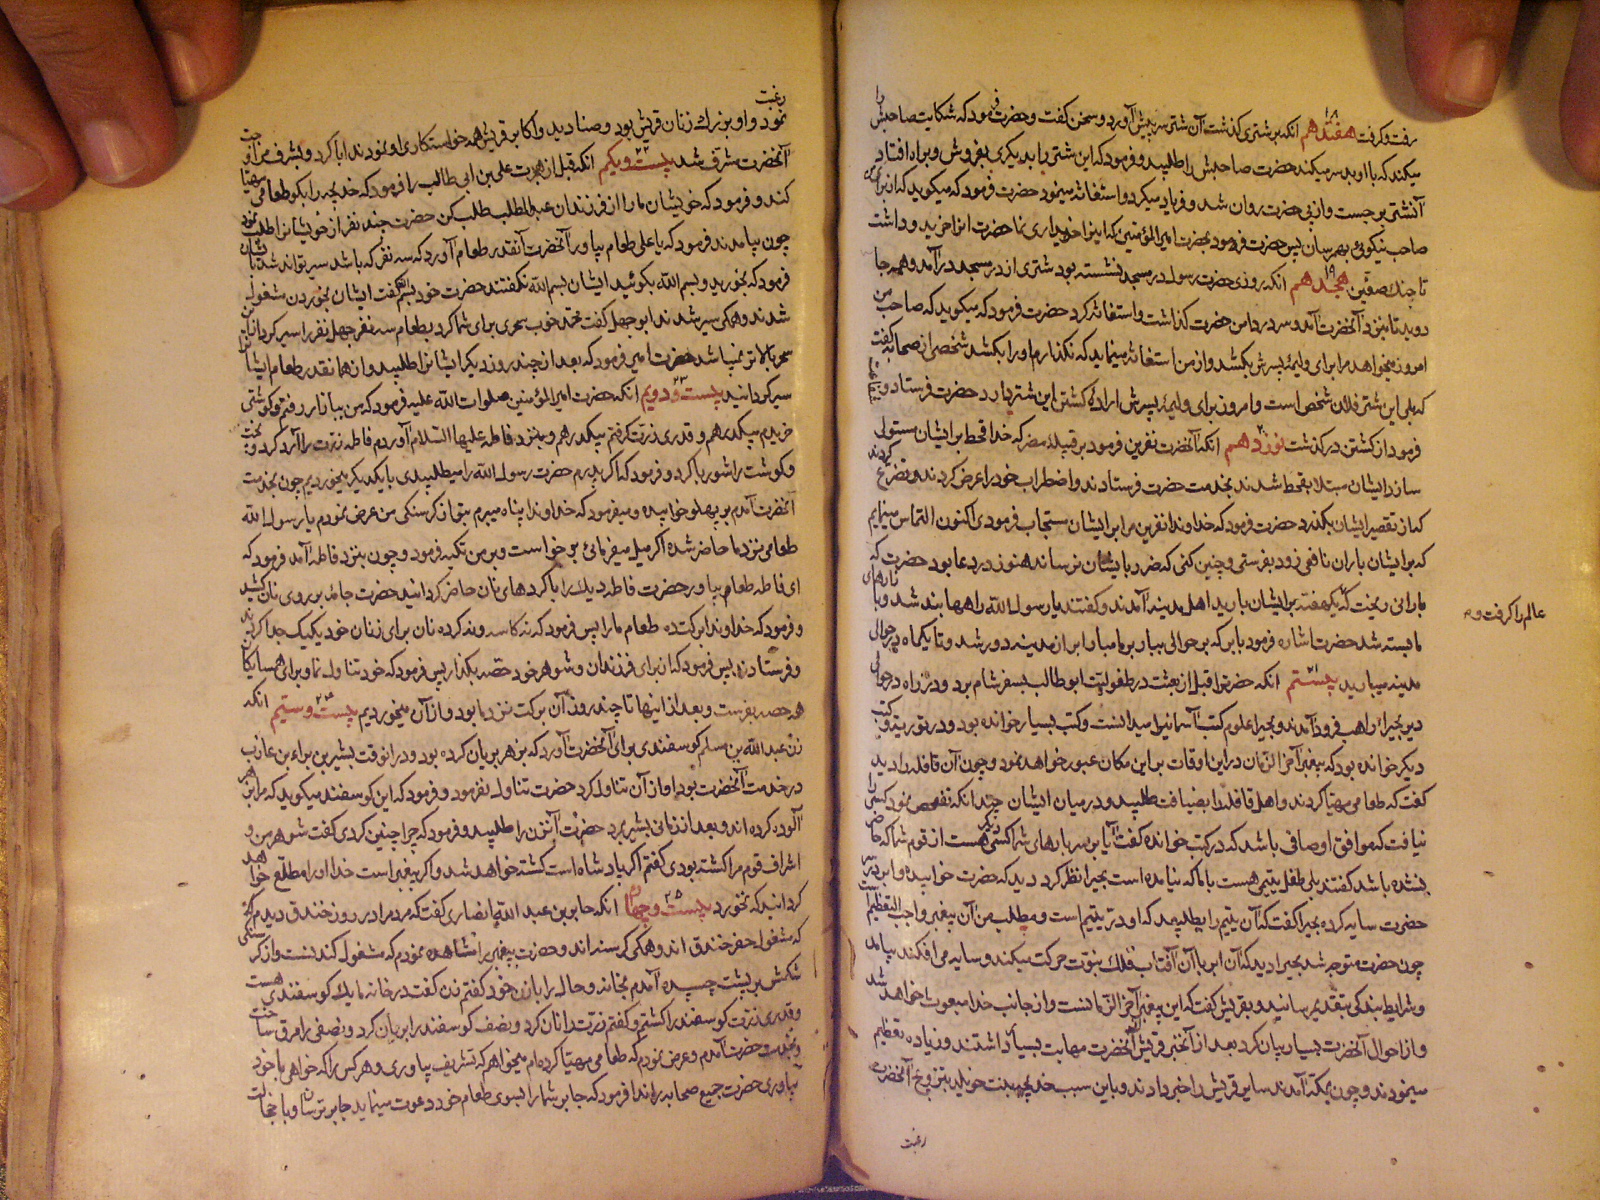 رفت و گرفت هفتدهم انکه بر شتری گذشت آن شتر سر پیش آورد و سخن گفت و حضرت فرمود که شکایت صاحبش را
میکند که با او بد سر میکند حضرت صاحبش را طلبید و فرمود که این شتر را بدیگری بفروش و براه افتاد
آنشتر برجست و از پی حضرت روان شد و فریاد میکرد و استغاثه مینمود حضرت فرمود که میگوید که از برای من
صاحب نیکوئی بهم رسان پس حضرت فرمود بحضرت امیر المؤمنین که اینرا خریداری نما حضرت انرا خرید و داشت
تا جنك صفین هجدهم انکه روزی حضرت رسول در مسجد نشسته بود شتری از در مسجد درآمد و همه جا
دوید تا بنزد آنحضرت آمد و سر در دامن حضرت گذاشت و استغاثه کرد حضرت فرمود که میگوید که صاحب من
امروز میخواهد مرا برای ولیمۀ پسرش بکشد و از من استغاثه مینماید که نگذارم او را بکشد شخصی از صحابه گفت
که بلی این شتر فلان شخص است و امروز برای ولیمۀ پسرش ارادۀ کشتن این شتر دارد حضرت فرستاد و
فرمود از کشتن درگذشت نوزدهم انکه آنحضرت نفرین فرمود بر قبیلۀ مضر که خدا قحط بر ایشان مستولی
سازد ایشان مبتلا بقحط شدند بخدمت حضرت فرستادند و اضطراب خود را عرض کردند و تضرع کردند
که از تقصیر ایشان بگذرد حضرت فرمود که خداوندا نفرین مرا بر ایشان مستجاب فرمودی اکنون التماس مینمایم
که بر ایشان باران نافعی زود بفرستی و چنین کنی که ضرر بایشان نرساند هنوز در دعا بود حضرت که
بارانی ریخت که یکهفته بر ایشان بارید اهل مدینه آمدند و گفتند یا رسول الله راهها بند شد و بازارهای
ما بسته شد حضرت اشاره فرمود بابر که بر حوالی ببار بر ما مبار ابر از مدینه دور شد و تا یکماه در حوالی
عالم را گرفت و م
مدینه میبارید بیستم انکه حضرت را قبل از بعثت در طفولیت ابو طالب بسفر شام برد و در راه در حوالی
دیر بحیرای راهب فرود آمدند و بحیرا علوم کتب آسمانی میدانست و کتب بسیار خوانده بود و در توریة و کتب
دیگر خوانده بود که پیغمبر آخر الزمان در این اوقات بر این مکان عبور خواهد نمود و چون آن قافله را دید
گفت که طعامی مهیا کردند و اهل قافله را بضیافت طلبید و در میان ایشان چندانکه تفحص نمود کسی را
نیافت که موافق اوصافی باشد که در کتب خوانده گفت آیا بر سر بارهای شما کسی دیگر هست از قوم شما که حاضر
نشده باشد گفتند بلی طفل یتیمی هست با ما که نیامده است بحیرا نظر کرد دید که حضرت خوابیده و ابر بر سر
حضرت سایه کرده بحیرا گفت که آن یتیم را بطلبید که او در یتیم است و مطلب من آن پیغمبر واجب التعظیم است
چون حضرت متوجه شد بحیرا دید که آن ابر با آن آفتاب فلك نبوت حرکت میکند و سایه می افکند بیامد
و شرایط بندگی بتقدیم رسانید و بقریش گفت که این پیغمبر آخر الزمانست و از جانب خدا مبعوث خواهد شد
و از احوال آنحضرت بسیار بیان کرد بعد از آن خبر قریش از آنحضرت مهابت بسیار داشتند و زیاده تعظیم
مینمودند و چون بمکه آمدند سایر قریش را خبر دادند و باین سبب خدیجه بنت خویلد بتزویج آنحضرت
رغبت
رغبت
نمود و او بزرك زنان قریش بود و صنادید و اکابر قریش همه خواستکاری او نمودند ابا کرد و بشرف مزاوجت
آنحضرت مشرف شد بیست و یکم انکه قبل از هجرت علی بن ابی طالب را فرمود که خدیجه را بگو طعامی مهیا
کند و فرمود که خویشان ما را از فرزندان عبد المطلب طلب کن حضرت چند نفر از خویشانرا طلب نمود
چون بیامدند فرمود که یا علی طعام بیاور آنحضرت آنقدر طعام آورد که سه نفر که باشد سیر تواند شد بایشان
فرمود که بخورید و بسم الله بگوئید ایشان بسم الله نگفتند حضرت خود بسم الله گفت ایشان بخوردن مشغول
شدند و همگی سیر شدند ابو جهل گفت محمد خوب سحری برای شما کرد بطعام سه نفر چهل نفر را سیر گردانید
سحر بالاتر نمیباشد حضرت امیر فرمود که بعد از چند روز دیگر ایشانرا طلبید و از همانقدر طعام ایشانرا
سیر گردانید بیست و دویم انکه حضرت امیر المؤمنین صلوات الله علیه فرمود که من ببازار رفتم و گوشتی
خریدم بیکدرهم و قدری ذرت گرفتم بیکدرهم و بنزد فاطمه علیها السلام آوردم فاطمه ذرت را آرد کرد و پخت
و گوشت را شوربا کرد و فرمود که اگر پدرم حضرت رسول الله را میطلبیدی با یکدیگر میخوردیم چون بخدمت
آنحضرت آمدم بر پهلو خوابیده و میفرمود که خداوندا پناه میبرم بتو از گرسنگی من عرض نمودم یا رسول الله
طعامی نزد ما حاضر شده اگر میل میفرمائی برخواست و بر من تکیه فرمود و چون بنزد فاطمه آمد فرمود که
ای فاطمه طعام بیاور حضرت فاطمه دیك را با گردهای نان حاضر گردانید حضرت جامه بر روی نان کشید
و فرمود که خداوندا برکت ده طعام ما را پس فرمود که نه کاسه و نه گرده نان برای زنان خود یکیك جدا کردند
و فرستادند پس فرمود که از برای فرزندان و شوهر خود حصه بگذار پس فرمود که خود تناول نما و برای همسایگان
هم حصه بفرست و بعد از اینها تا چند روز آن برکت نزد ما بود و از آن میخوردیم بیست و سیم انکه
زن عبد الله بن مسلم گوسفندی برای آنحضرت آورد که بزهر بریان کرده بود و در انوقت بشیر بن براء بن عازب
در خدمت آنحضرت بود او از آن تناول کرد حضرت تناول نفرمود و فرمود که این گوسفند میگوید که مرا بزهر
آلوده کرده اند و بعد از زمانی بشیر بمرد حضرت آنزن را طلبید و فرمود که چرا چنین کردی گفت شوهر من و
اشراف قوم مرا کشته بودی گفتم اگر پادشاه است کشته خواهد شد و اگر پیغمبر است خدا او را مطلع خواهد
گردانید که نخورد بیست و چهارم انکه جابر بن عبد الله انصاری گفت که مردم را در روز خندق دیدم که
که مشغول حفر خندق اند و همگی گرسنه اند و حضرت پیغمبر را مشاهده نمودم که مشغول کندنست و از گرسنگی
شکمش بر پشت چسبیده آمدم بخانه و حال را بازن خود گفتم زن گفت در خانه ما یك گوسفندی هست
و قدری ذرت گوسفند را کشتم و گفتم ذرت را نان کرد و نصف گوسفند را بریان کرد و نصفی را مرق ساخت
و بخدمت حضرت آمدم و عرض نمودم که طعامی مهیا کرده ام میخواهم که تشریف بیاوری و هر کس را که خواهی با خود
بیاوری حضرت جمیع صحابه را ندا فرمود که جابر شما را بسوی طعام خود دعوت مینماید جابر ترسان و با خجالت